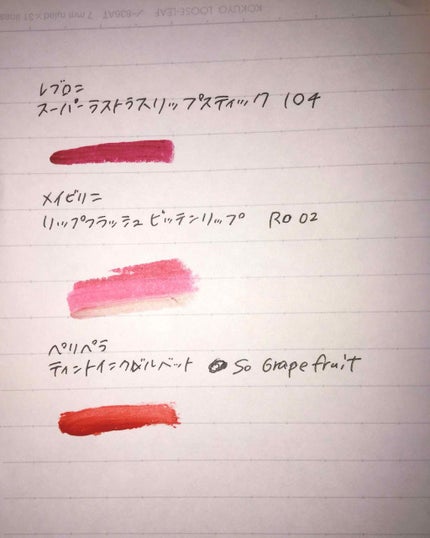 KOKUYO LOOSE-LEAF ノ-836AT 7 mm ruled × 31 lines
レブロン
スーパーラストラスリップスティック 104
メイビリン
リップフラッシュ ビッテンリップ RD 02
ペリペラ
ティントインクベルベット So Grapefruit